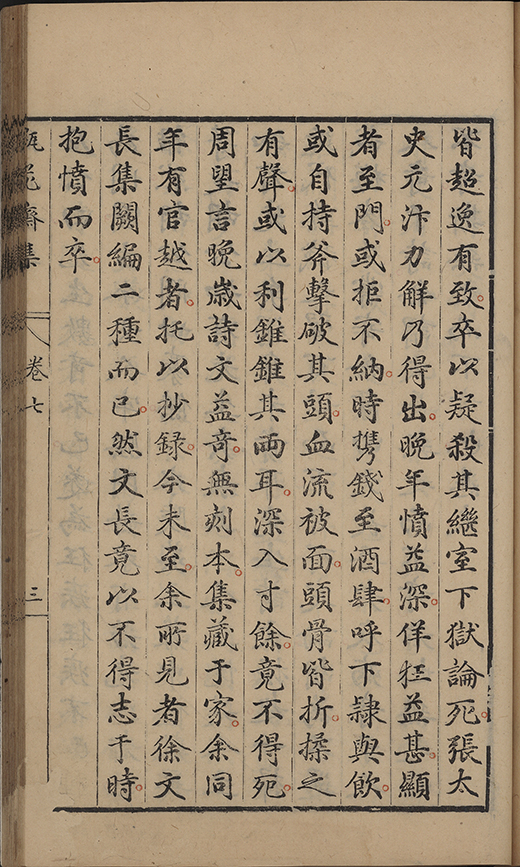 皆超逸有致。卒以疑殺其繼室下獄論死。張太
史元汴力解乃得出。晚年憤益深。佯狂益甚。顯
者至門。或拒不納。時携錢至酒肆。呼下隸與飲。
或自持斧擊破其頭。血流被面。頭骨皆折。揉之
有聲。或以利錐錐其兩耳。深入寸餘。竟不得死。
周望言晚歲詩文益奇。無刻本。集藏于家。余同
年有官越者。托以抄錄。今未至。余所見者。徐文
長集闕編二種而已。然文長竟以不得志于時。
抱憤而卒。
瓶花齋集
卷七
三